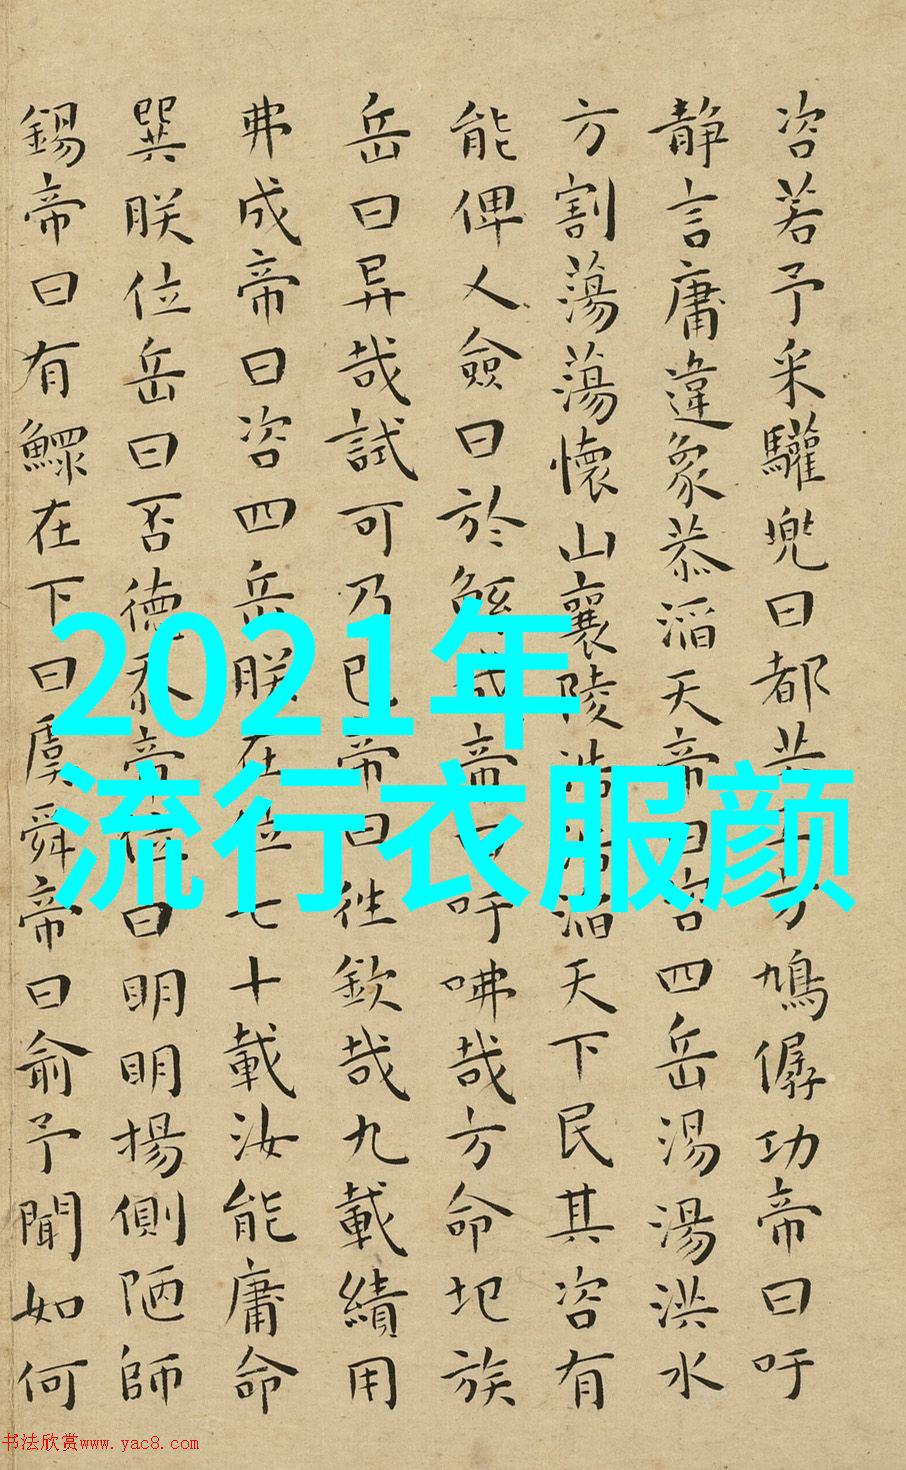 咨若予采驩兜曰都共工方鳩僝功帝曰吁
静言庸違象恭滔天帝曰咨四岳湯湯洪水
方割蕩蕩懷山襄陵浩浩滔天下民其咨有
能俾人僉曰於鯀哉帝曰吁咈哉方命圮族
岳曰异哉試可乃已帝曰徃欽哉九載績用
弗成帝曰咨四岳朕在位七十載汝能庸命
巽朕位岳曰否德忝帝位曰明明揚側陋師
錫帝曰有鰥在下曰虞舜帝曰俞予聞如何
2021年
流行衣服颜
书法欣赏www.yac8.com